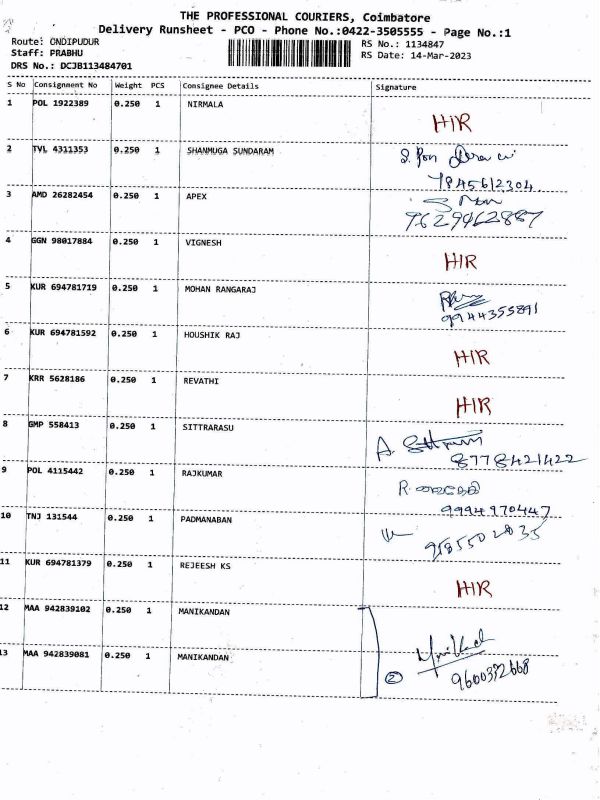 THE PROFESSIONAL COURIERS, Coimbatore
Delivery Runsheet - PCO - Phone No.:0422-3505555 - Page No.:1
Route: ONDIPUDUR
RS No.: 1134847
Staff: PRABHU
RS Date: 14-Mar-2023
DRS No.: DCJB113484701
S No Consignment No Weight PCS Consignee Details Signature
1 POL 1922389 0.250 1 NIRMALA
HIR
2 TVL 4311353 0.250 1 SHANMUGA SUNDARAM
7845612304
3 AMD 26282454 0.250 1 APEX
9629462887
4 GGN 98017884 0.250 1 VIGNESH
HIR
5 KUR 694781719 0.250 1 MOHAN RANGARAJ
9944355891
6 KUR 694781592 0.250 1 HOUSHIK RAJ
HIR
7 KRR 5628186 0.250 1 REVATHI
HIR
8 GMP 558413 0.250 1 SITTRARASU
8778421422
9 POL 4115442 0.250 1 RAJKUMAR
9994970447
10 TNJ 131544 0.250 1 PADMANABAN
9585502035
11 KUR 694781379 0.250 1 REJEESH KS
HIR
12 MAA 942839102 0.250 1 MANIKANDAN
13 MAA 942839081 0.250 1 MANIKANDAN
2
9600372668